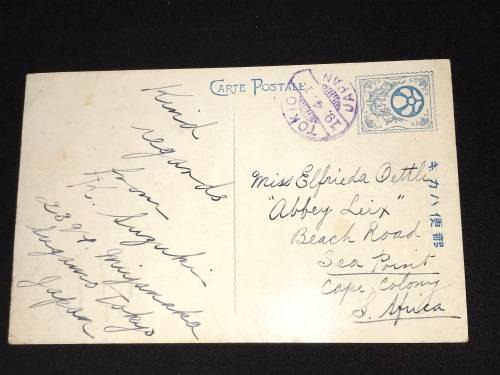 CARTE POSTALE
TOKIO
JAPAN
Kind
regards
from
K. Suzuki
Sugamo Tokyo
Japan
Miss Elfrieda Oettle
"Abbey Leix"
Beach Road
Sea Point
Cape Colony
S. Africa
郵便ハカキ